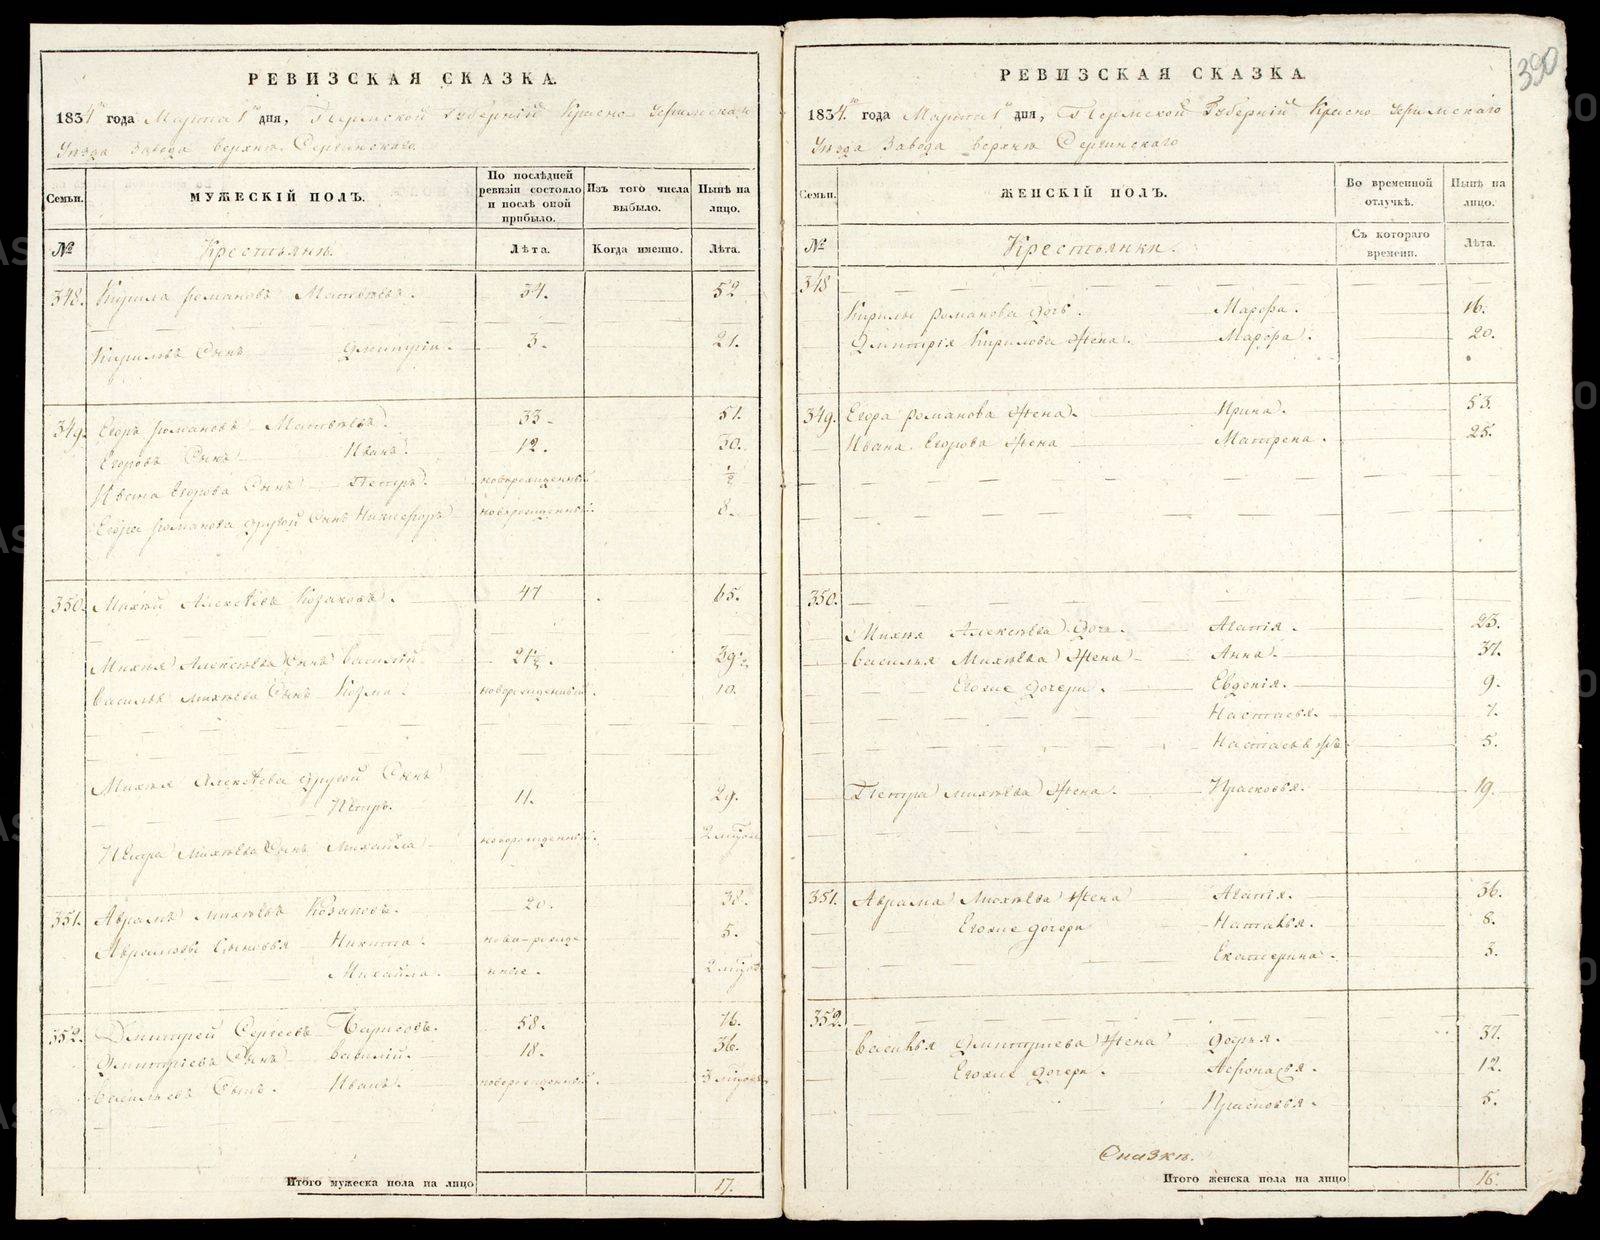 РЕВИЗСКАЯ СКАЗКА.
1834го года Марта 1 дня, Пермской Губерніи Красно-Уфимскаго
Уѣзда Завода верхнѣ Сергинскаго
Семьи.
МУЖЕСКІЙ ПОЛЪ.
По послѣдней ревизіи состояло и послѣ оной прибыло.
Изъ того числа выбыло.
Нынѣ на лицо.
№
Крестьянѣ.
Лѣта.
Когда именно.
Лѣта.
348. Кирила Романовъ Матвѣевъ. 34. 52
Кириловъ Сынъ Дмитрій. 3. 21.
349. Егоръ Романовъ Матвѣевъ. 33. 51.
Егоровъ Сынъ Иванъ. 12. 30.
Ивана Егорова Сынъ Петръ. новорожденный. ½
Егора Романова другой Сынъ Никифоръ новорожденный. 8.
350. Михѣй Алексѣевъ Козаковъ. 47 65.
Михѣя Алексѣева Сынъ Василій 21½. 39½
Василья Михѣева Сынъ Козма. новорожденный. 10.
Михѣя Алексѣева другой Сынъ
Петръ. 11. 29.
Петра Михѣева Сынъ Михайла новорожденный. 2
351. Аврамъ Михѣевъ Козаковъ. 20. 38.
Аврамовы Сыновья Никита. ново-рожде- 5.
Михайла. нные. 2
352. Дмитрей Сергеевъ 58. 76.
Дмитріевъ Сынъ Василій. 18. 36.
Васильевъ Сынъ. Иванъ. новорожденный. 3
Итого мужеска пола на лицо 17.
390
РЕВИЗСКАЯ СКАЗКА.
1834.го года Марта 1 дня, Пермской Губерніи Красно-Уфимскаго
Уѣзда Завода верхнѣ Сергинскаго
Семьи.
ЖЕНСКІЙ ПОЛЪ.
Во временной отлучкѣ.
Нынѣ на лицо.
№
Крестьянки.
Съ котораго времени.
Лѣта.
348
Кирилы Романова дочь. Марфа. 16.
Дмитрія Кирилова Жена. Марфа. 20.
349. Егора Романова Жена. Ирина. 53.
Ивана Егорова Жена Матрена. 25.
350.
Михѣя Алексѣева дочь. Агапія. 23.
Василья Михѣева Жена Анна. 37.
Егоже дочери. Евдокія. 9.
Настасья. 7.
Настасья 5.
Петра Михѣева Жена. Прасковья. 19.
351. Аврама Михѣева Жена Агапія. 36.
Егоже дочери Наталья. 8.
Екатерина. 3.
352.
Василья Дмитріева Жена Дарья. 37.
Егоже дочери. Афонасья. 12.
Прасковья. 5.
Сказкѣ.
Итого женска пола на лицо 16.